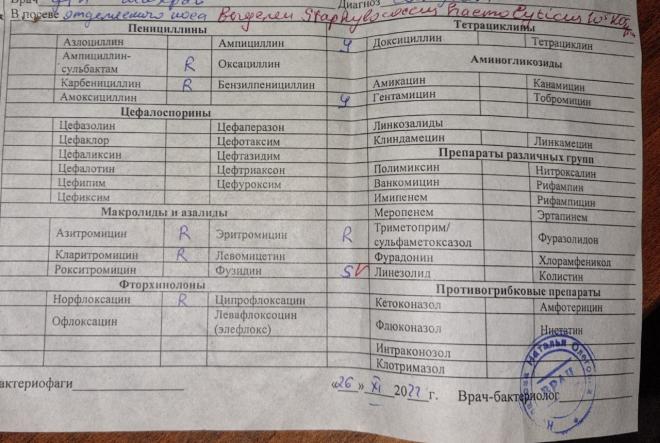 Врач
Диагноз
В посеве отделяемого носа выделен Staphylococcus haemolyticus
Пенициллины Тетрациклины
Азлоциллин Ампициллин Доксициллин Тетрациклин
Ампициллин-
сульбактам R Оксациллин Аминогликозиды
Карбенициллин R Бензилпенициллин Амикацин Канамицин
Амоксициллин Гентамицин Тобромицин
Цефалоспорины
Цефазолин Цефаперазон Линкозалиды
Цефаклор Цефотаксим Клиндамецин Линкамецин
Цефаликсин Цефтазидим Препараты различных групп
Цефалотин Цефтриаксон Полимиксин Нитроксалин
Цефипим Цефуроксим Ванкомицин Рифампин
Цефиксим Имипенем Рифампицин
Макролиды и азалиды Меропенем Эртапинем
Азитромицин R Эритромицин R Триметоприм/
сульфаметоксазол Фуразолидон
Кларитромицин R Левомицетин Фурадонин Хлорамфеникол
Рокситромицин Фузидин S V Линезолид Колистин
Фторхинолоны Противогрибковые препараты
Норфлоксацин R Ципрофлоксацин Кетоконазол Амфотерицин
Офлоксацин Левафлоксоцин
(элефлокс) Флюконазол Нистатин
Интраконозол
Клотримазол
актериофаги «26» XI 2022г. Врач-бактериолог
Наталья
ВРАЧ